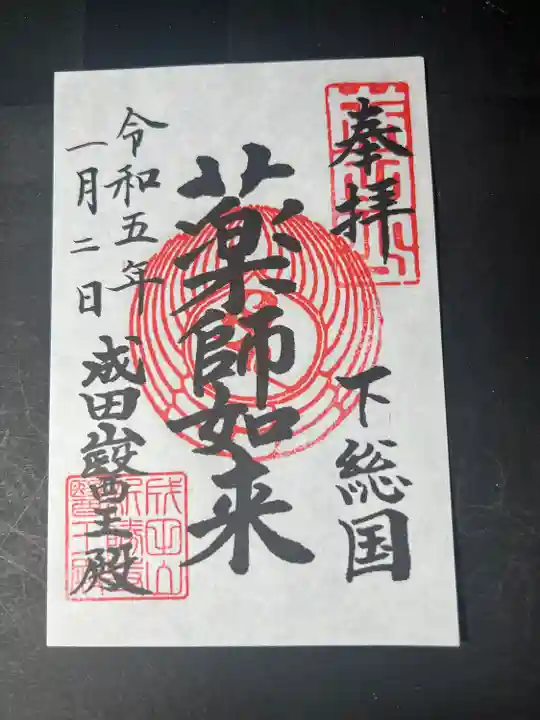 奉拝
下総国
薬師如来
令和五年
一月二日
成田山醫王殿